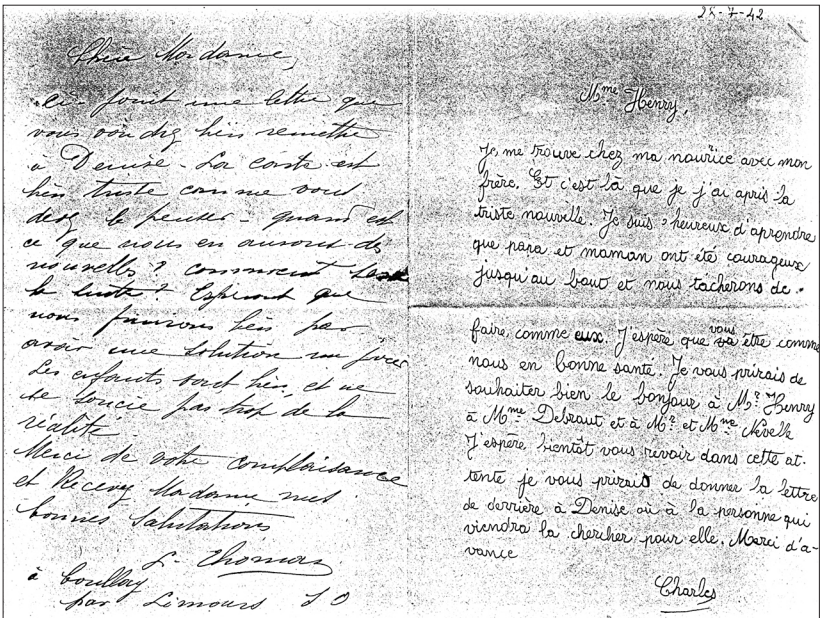 Chère Madame,
ci-joint une lettre que
vous voudrez bien remettre
à Denise - La carte est
bien triste comme vous
devez le penser - quand est
ce que nous en aurons des
nouvelles ? comment sera
la suite ? Espérons que
nous finirons bien par
avoir une solution un jour
Les enfants sont bien, et ne
se soucie pas trop de la
réalité
Merci de votre complaisance
et Recevez Madame mes
bonnes Salutations
L. Thomas
à
par Limours S O
28-7-42
Mme Henry,
Je, me trouve chez ma nourice avec mon
frère. Et c'est là que je j'ai apris la
triste nouvelle. Je suis heureux d'aprendre
que papa et maman ont été courageux
jusqu'au bout et nous tâcherons de
faire, comme eux. J'espère que vous être comme
nous en bonne santé. Je vous prirais de
souhaiter bien le bonjour à Mr Henry
à Mme Debraut et à Mr et Mme Nevelle
J'espère, bientôt vous revoir dans cette at-
tente je vous prirais de donner la lettre
de derrière à Denise où à la personne qui
viendra la chercher pour elle. Merci d'a-
vance
Charles